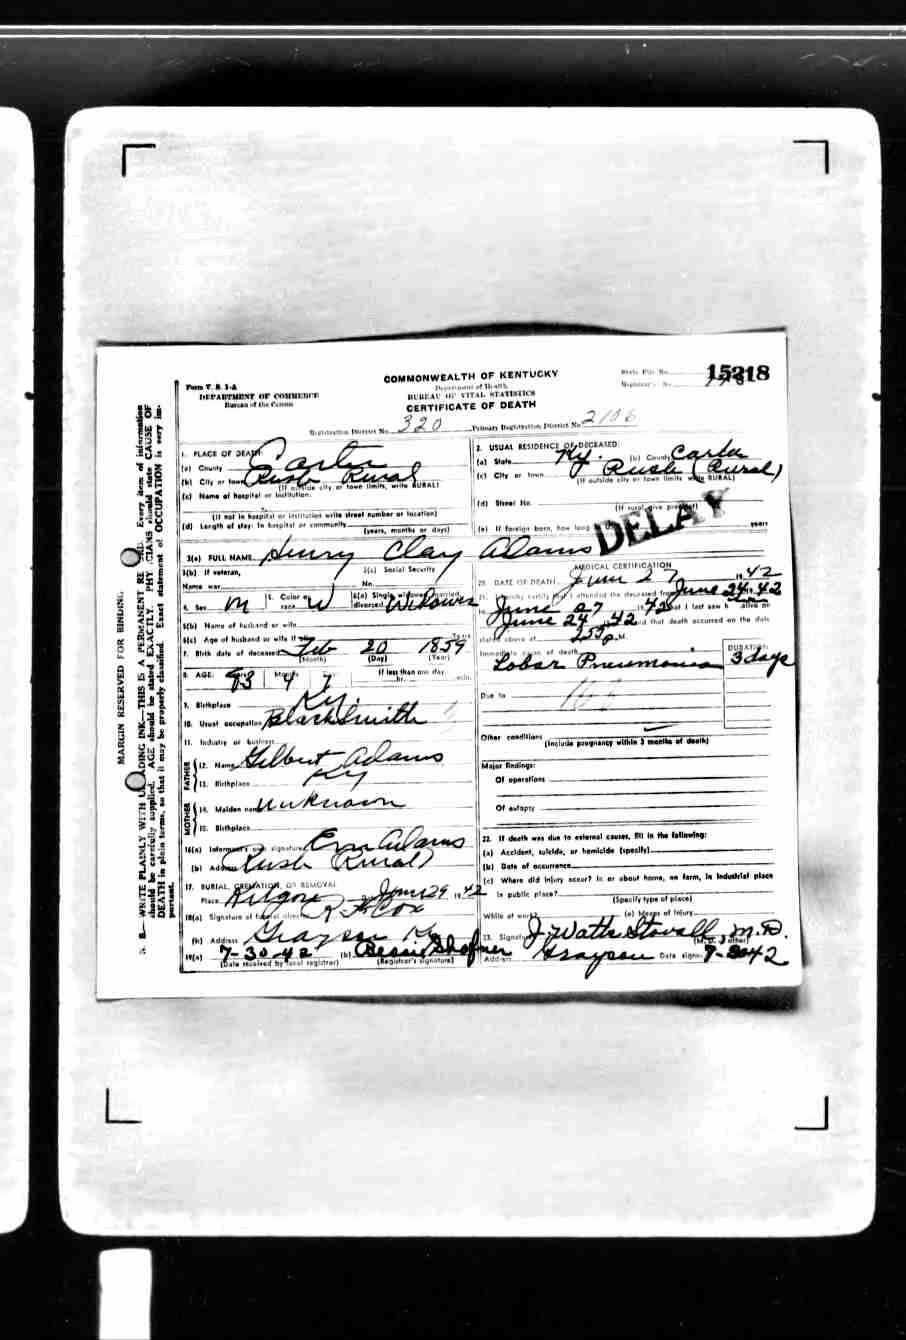 State File No. 15218
Form V. S. 1-A
COMMONWEALTH OF KENTUCKY
Registrar's No.
DEPARTMENT OF COMMERCE
Bureau of the Census
Department of Health
BUREAU OF VITAL STATISTICS
CERTIFICATE OF DEATH
Registration District No. 320 Primary Registration District No. 2106
MARGIN RESERVED FOR BINDING
1. PLACE OF DEATH:
(a) County Carter
(b) City or town Rush Rural
(If outside city or town limits, write RURAL)
(c) Name of hospital or institution:
(If not in hospital or institution write street number or location)
(d) Length of stay: In hospital or community
(years, months or days)
2. USUAL RESIDENCE OF DECEASED:
(a) State Ky. (b) County Carter
(c) City or town Rush (Rural)
(If outside city or town limits write RURAL)
(d) Street No.
(If rural give precinct)
(e) If foreign born, how long
years
DELAY
3(a) FULL NAME Henry Clay Adams
3(b) If veteran,
Name war
3(c) Social Security
No.
4. Sex M 5. Color or race W 6(a) Single, widowed, married, divorced Widower
6(b) Name of husband or wife
6(c) Age of husband or wife if alive Years
7. Birth date of deceased Feb 20 1859
(Month) (Day) (Year)
8. AGE: Years 83 Months 4 7 If less than one day
hr. min.
9. Birthplace Ky.
10. Usual occupation BlackSmith
11. Industry or business
FATHER
12. Name Gilbert Adams
13. Birthplace Ky
MOTHER
14. Maiden name Unknown
15. Birthplace
16(a) Informant's own signature Adams
(b) Address Rush (Rural)
17. BURIAL, CREMATION, OR REMOVAL
Place Kilgore June 29, 1942
18(a) Signature of funeral director Cox
(b) Address Grayson Ky
19(a) 7-30-42 (b)
(Date received by local registrar) (Registrar's signature)
MEDICAL CERTIFICATION
20. DATE OF DEATH June 27 1942
21. I hereby certify that I attended the deceased from June 24 1942
to June 27 1942 that I last saw h alive on
June 24, 42 and that death occurred on the date
stated above at P M.
Immediate cause of death
Lobar Pneumonia
DURATION
3 days
Due to
Other conditions
(Include pregnancy within 3 months of death)
Major findings:
Of operations
Of autopsy
22. If death was due to external causes, fill in the following:
(a) Accident, suicide, or homicide (specify)
(b) Date of occurrence
(c) Where did injury occur? In or about home, on farm, in industrial place
in public place?
(Specify type of place)
While at work? (e) Means of injury
23. Signature J Watts Stovall, M.D.
(M.D. or other)
Address Grayson Date signed
N. B.—WRITE PLAINLY WITH UNFADING INK—THIS IS A PERMANENT RECORD. Every item of information
should be carefully supplied. AGE should be stated EXACTLY. PHYSICIANS should state CAUSE OF
DEATH in plain terms, so that it may be properly classified. Exact statement of OCCUPATION is very im-
portant.